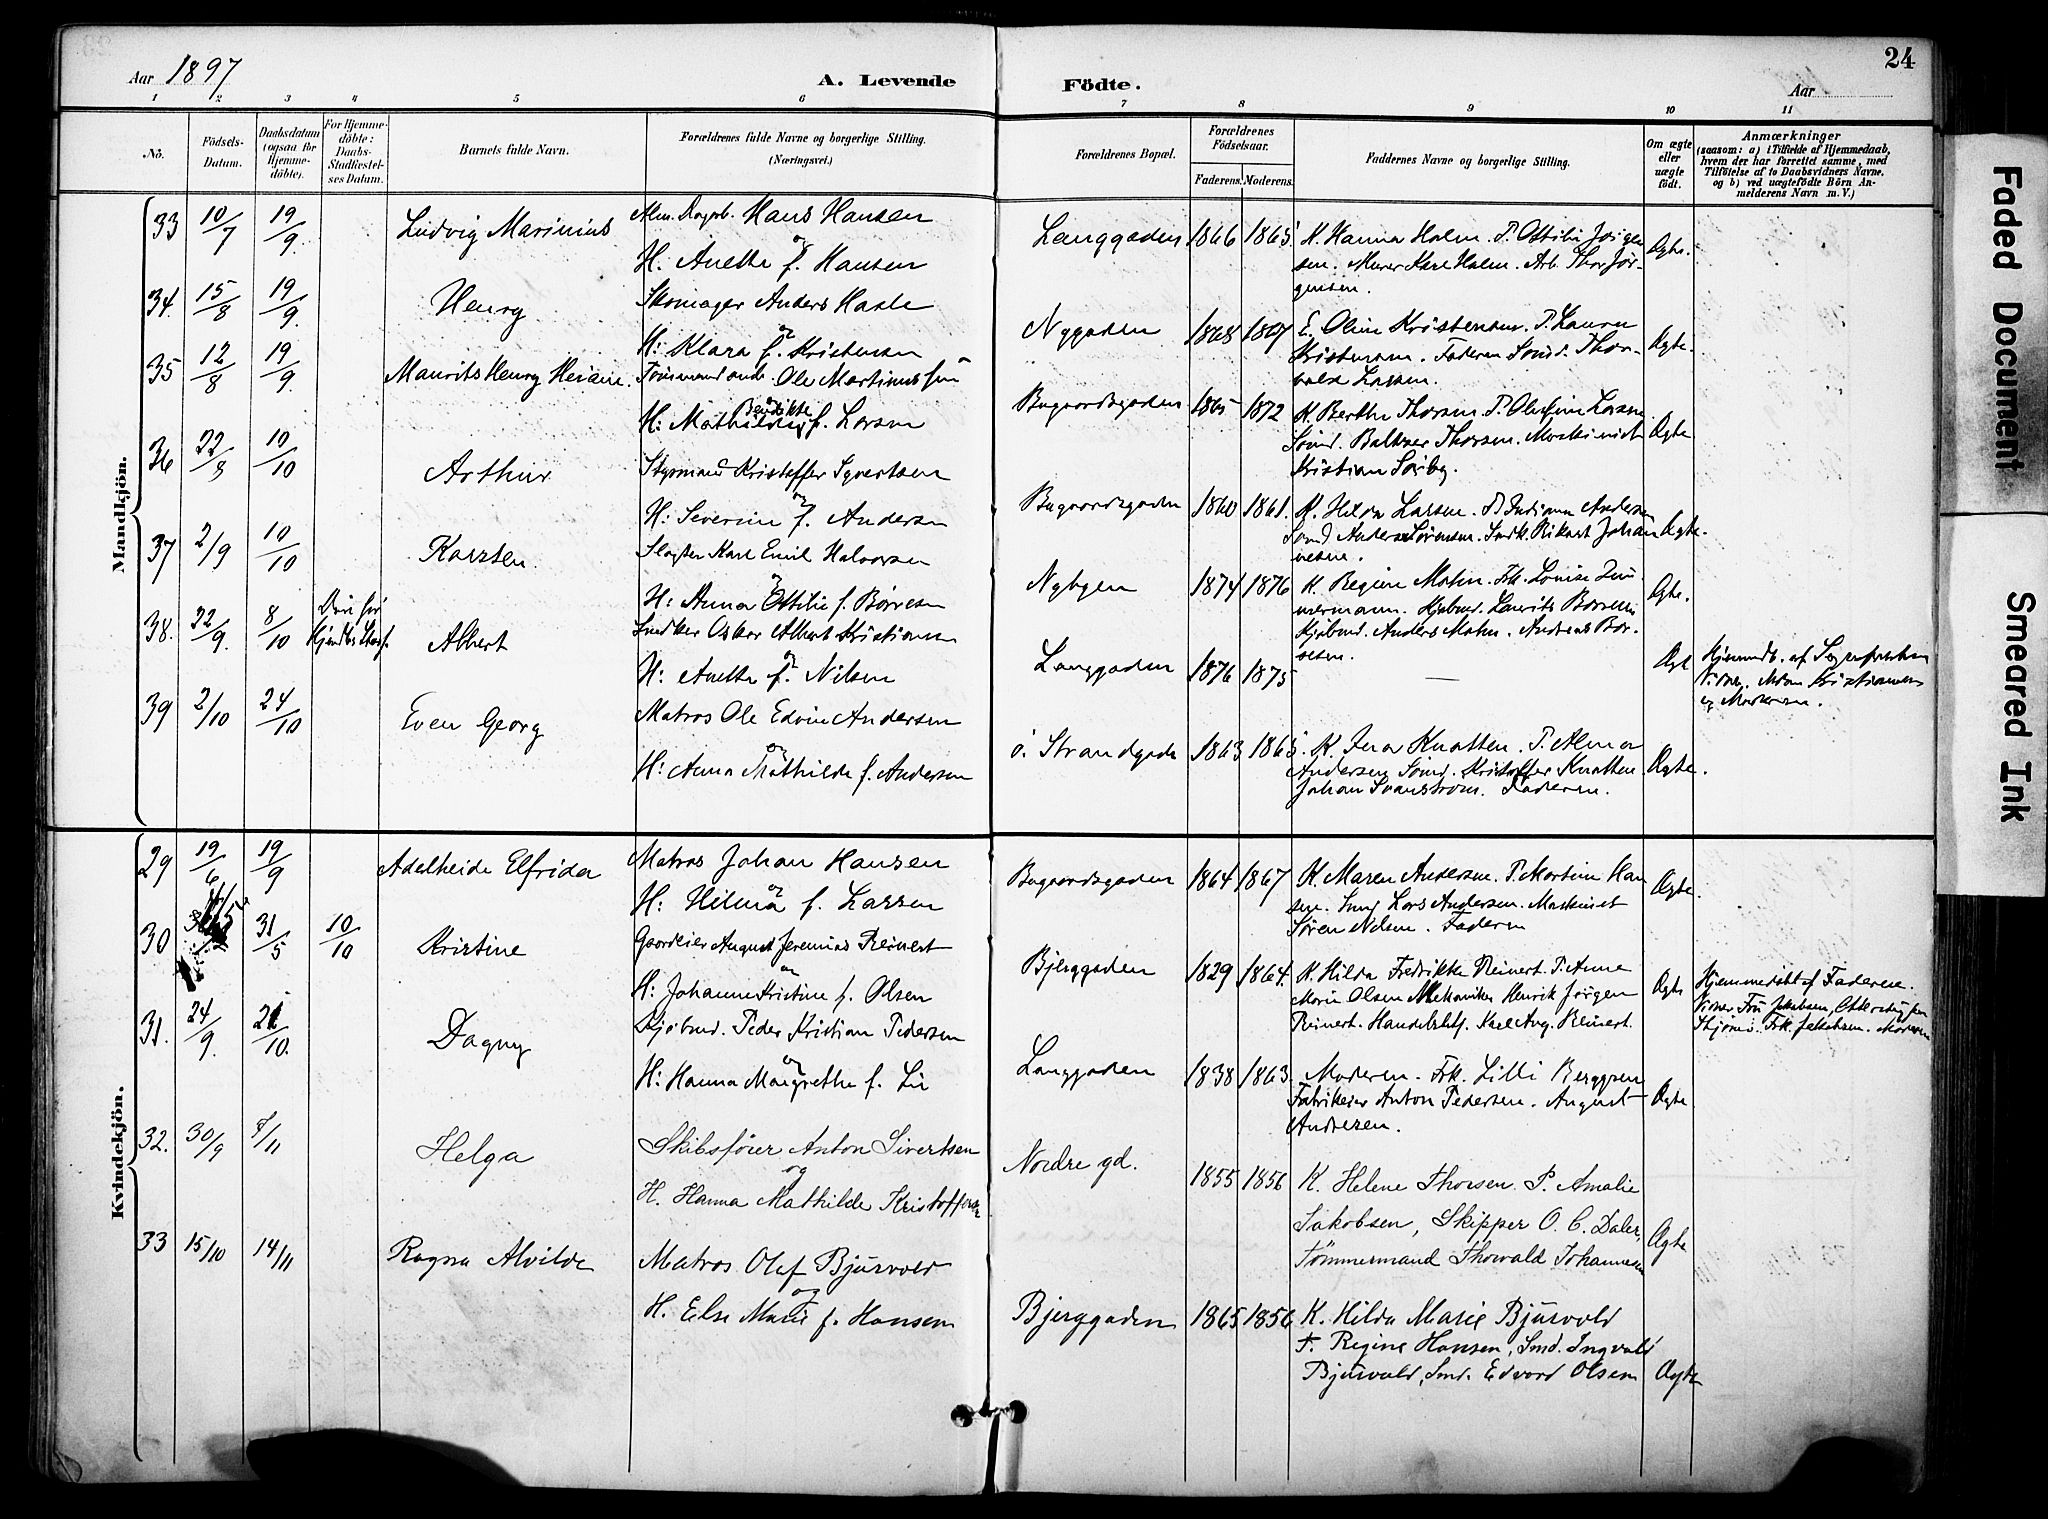 24
Aar 1897
A. Levende
Födte.
Aar
1 2 3 4 5 6 7 8 9 10 11
No.
Födsels-Datum.
Daabsdatum (ogsaa for Hjemme-döbte).
For Hjemme-döbte: Daabs-Stadfæstel-ses Datum.
Barnets fulde Navn.
Forældrenes fulde Navne og borgerlige Stilling.
(Næringsvei.)
Forældrenes Bopæl.
Forældrenes Födselsaar.
Faderens. Moderens.
Faddernes Navne og borgerlige Stilling.
Om ægte eller uægte födt.
Anmærkninger
(saasom: a) i Tilfælde af Hjemmedaab, hvem der har forrettet samme, med Tilföielse af to Daabsvidners Navne. og b) ved uægtefödte Börn An-melderens Navn m. V.)
Mandkjön.
33 10/7 19/9 Ludvig Marinius Hans Hansen
og
H. Anette f. Hansen
Langgaden 1866 1865 K. Hanna Holm. P. Ottilie Jørgen
sen. Murer Karl Holm. Arb. Thor Jør-
gensen.
Ægte.
34. 15/8 19/9 Henry Skomager Anders Hasle
og
H: Klara f. Kristensen
Nygaden 1868 1867 E. Oline Kristensen. P. Laura
Kristensen. Faderen Sømd. Thor-
vald Larsen.
Ægte.
35 12/8 19/9 Maurits Henry Ole Martinussen
og
H: Mathilde Bendikte f. Larsen
Bugaardsgaden 1865 1872 K. Berthe Thorsen. P. Olufine Larsen
Sømd. Baltzer Thorsen. Maskinist
Kristian Sørby.
Ægte
36 22/8 10/10 Arthur Styrmand Kristoffer Syvertsen
og
H: Severine f. Andersen
Bugaardsgaden 1860 1861. K. Helda Larsen. P. Indiana Andersen
Sømd Anders Sørensen. Snedk. Rikart Johan
nesen.
Ægte.
37 2/9 10/10 Karsten. Slagter Karl Emil Halvorsen
og
H: Anna Ottilie f. Børresen
Nybyen 1874 1876 K. Regine Mohn. Frk. Louise Zim
mermann. Kjøbmd. Laurits Børresen
Kjøbmd. Anders Mohn. Andreas Bør-
resen.
Ægte.
38. 22/9. 8/10 Albert Snedker Oskar Albert Kristiansen
og
H: Anette f. Nilsen
Langgaden 1876 1875 — Ægte
Hjemmedb. af
Kristiansen
og Moderen.
39 2/10 24/10 Even Georg Matros Ole Edvin Andersen
og
H: Anna Mathilde f. Andersen
ö. Strandgade 1863 1865 K. Jena Knatten. P. Alma
Andersen Sømd. Kristoffer Knatten.
Johan Svanstrøm. Faderen.
Ægte.
Kvindekjön.
29 19/6 19/9 Adelheide Elfrida Matros Johan Hansen
og
H: Hilma f. Larsen
Bugaardsgaden 1864 1867 K. Maren Andersen. P. Martine Han
sen. Lars Andersen. Maskinist
Søren Nilsen. Faderen
Ægte.
30 31/5 10/10 Kristine Gaardeier August Jeremias Reinert
og
H: Johanne Kristine f. Olsen
Bjerggaden 1829 1864. K. Hilda Fredrikke Reinert. P. Anne
Marie Olsen Mekaniker Henrik Jørgen
Reinert. Handelsbtj. Karl Aug. Reinert.
Ægte
Hjemmedøbt af Faderen.
Vidner Fru Jakobsen,
Frk. Jakobsen. Moderen
31. 24/9. 21/10. Dagny Kjøbmd. Peder Kristian Pedersen
og
H: Hanna Margrethe f. Lie
Langgaden 1838 1863. Moderen. Frk. Lilli Berggren
Fabrikeier Anton Pedersen. August
Andresen.
Ægte.
32. 30/9 7/11 Helga Skibsfører Anton Sivertsen
og
H. Hanna Mathilde Kristoffersen
Nordre gd. 1855 1856 K. Helene Thorsen P. Amalie
Jakobsen, Skipper O. C. Daler,
Tømmermand Thorvald Johannesen
Ægte
33 15/10 14/11 Ragna Alvilde Matros Olaf Bjurvold
og
H. Else Marie f. Hansen
Bjerggaden 1865 1856 K. Hilda Marie Bjurvold
F. Regine Hansen, Smd. Ingvald
Bjurvold, Smd. Edvard Olsen
Ægte
Faded Document
Smeared Ink